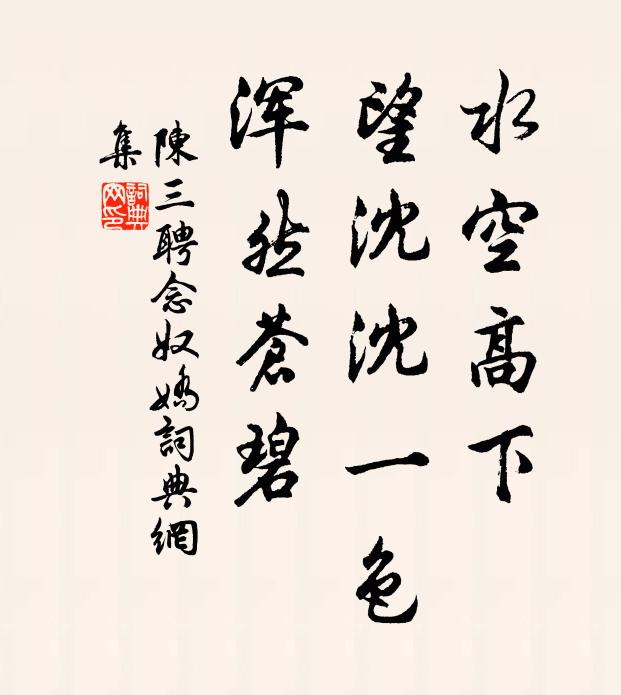 水空高下
望沈沈一色
浑然蒼碧
陳三聘念奴嬌詞典網
集
詞典网印